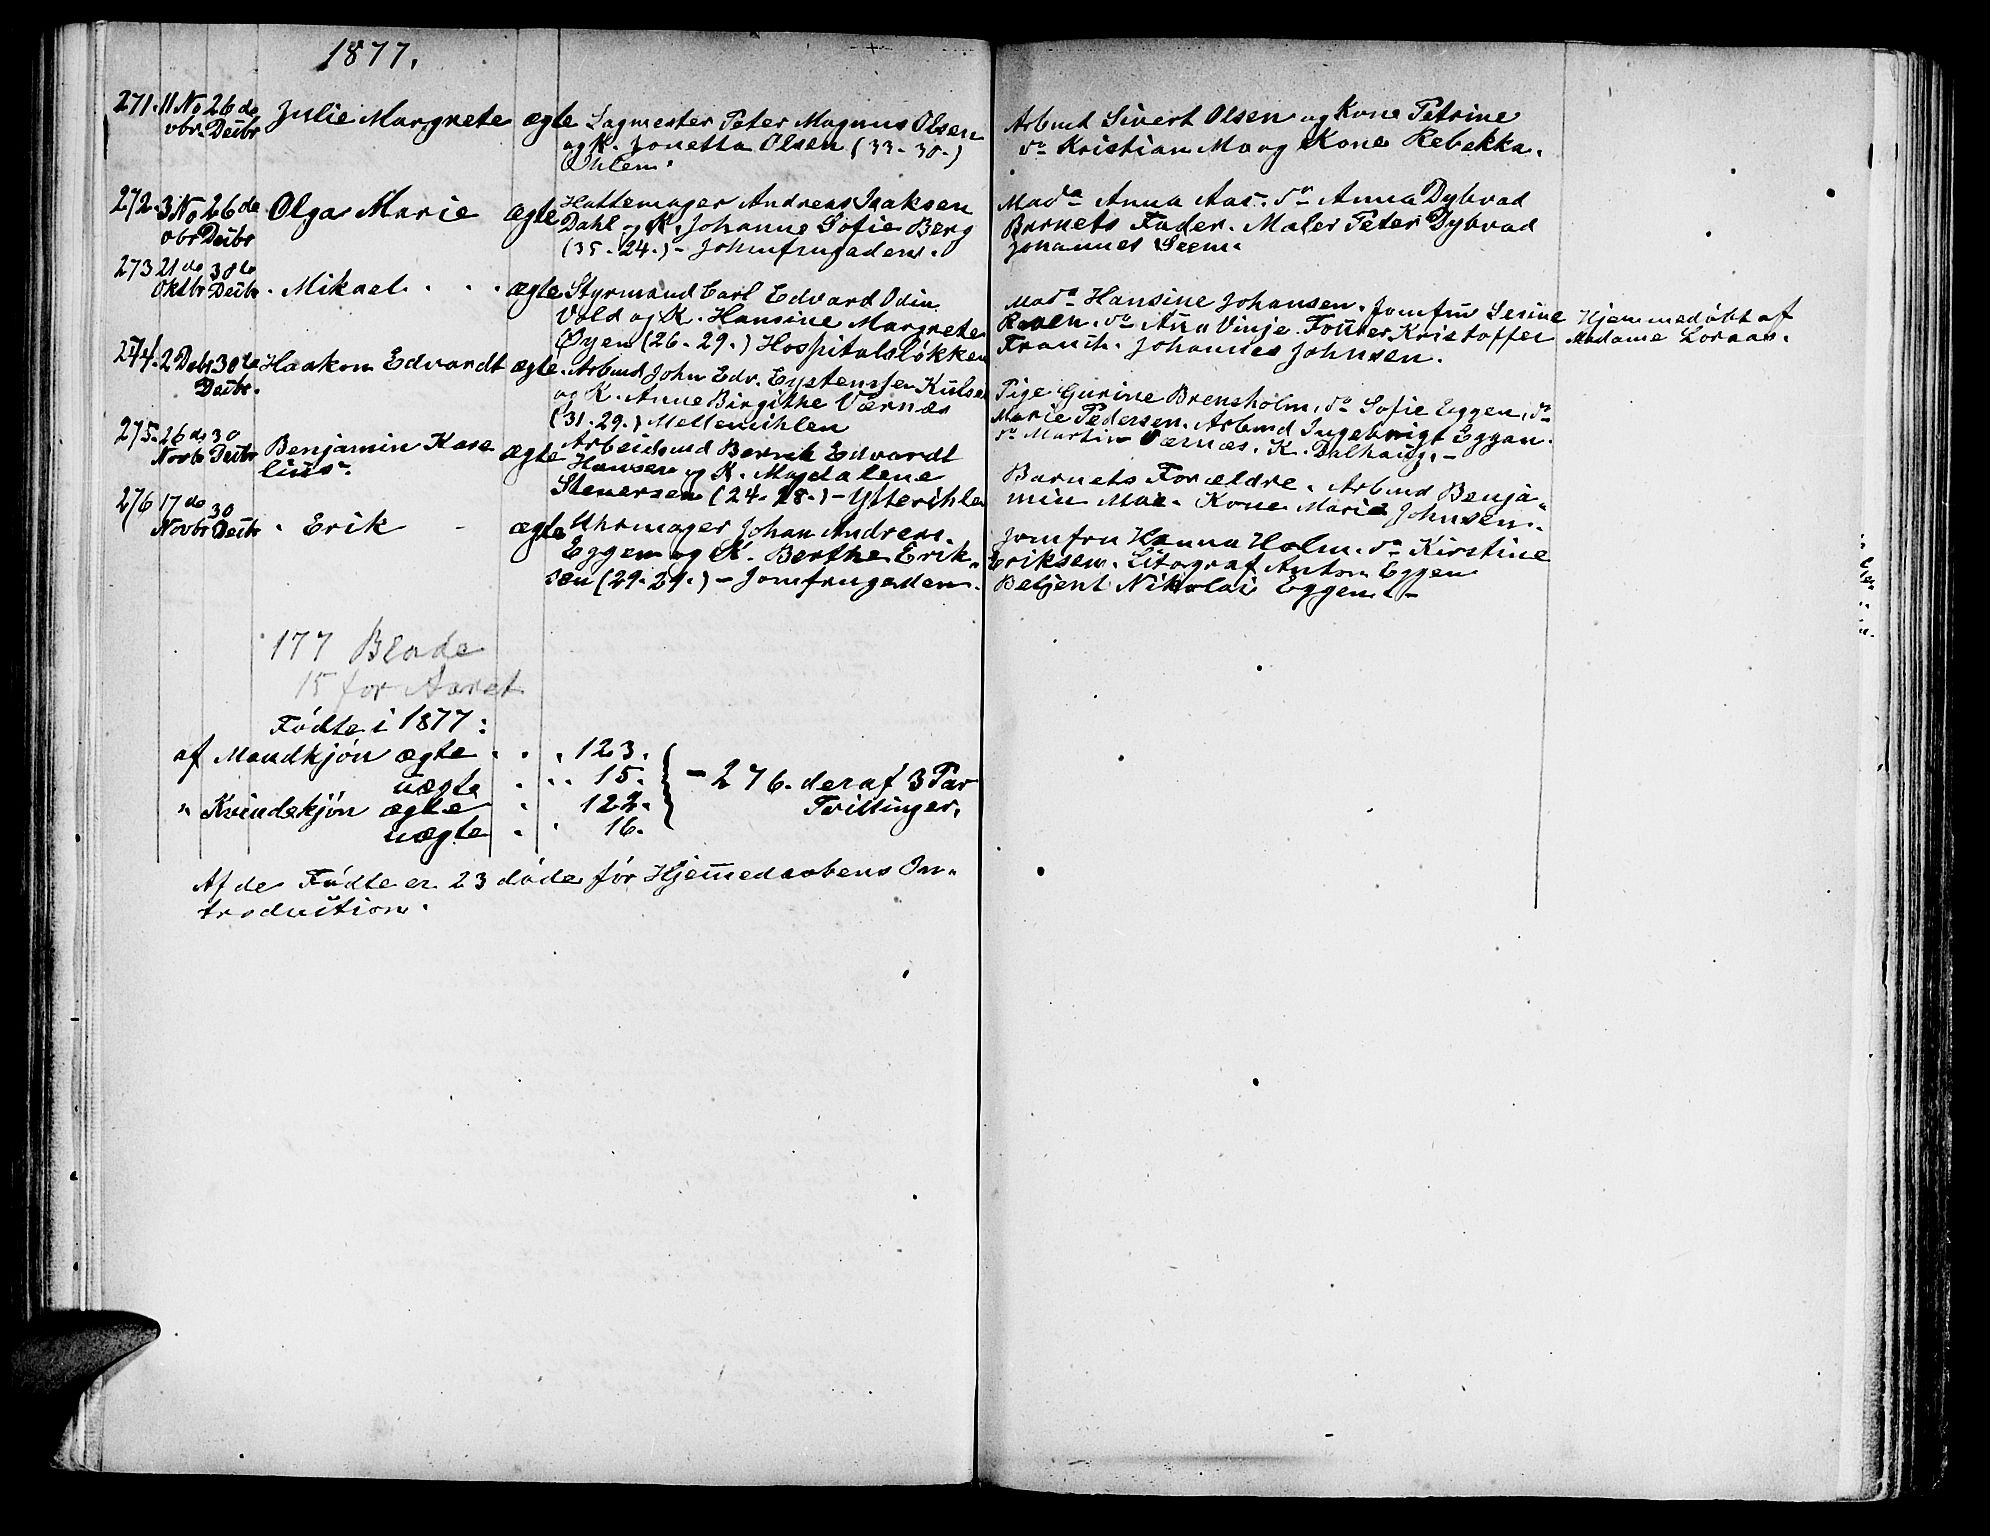 1877.
271. 11 No 26 de Julie Margrete ægte Sagmester Peter Magnus Olsen
vbr. Decbr og K. Jonetta Olsen (33-30-)
Ihlen.
Arbmd Sivert Olsen og Kone Petrine
do Kristian Mo og Kone Rebekka.
272. 3 No 26 de Olga Marie ægte Hattemager Andreas Isaksen
vbr Decbr Dahl og K. Johanne Sofie Berg
(35-24.) - Jomfrugaden.
Mada Anna Aas. do Anna Dybvad
Barnets Fader. Maler Peter Dybvad
Johannes Seem.
273 21 de 30te
Oktbr Decbr . Mikael . . . ægte Styrmand Carl Edvard Odin
Vold og K. Hansine Margrete
Øyen (26-29.) Hospitalsløkken
Mada Hansine Johansen. Jomfru Serine
Raaen. do Ana Vinje. Fourer Kristoffer
Franch. Johannes Johnsen.
Hjemmedøbt af
Madame Loraas.
274. 2 Debr 30te Haakon Edvardt ægte. Arbmd John Edv. Eystensen
Decbr. og K. Anne Birgithe Værnæs
(31-29.) Mellemihlen
Pige Gurine Brensholm, do Sofie Eggen, do
Marie Pedersen. Arbmd Ingebrigt Eggan.
do Martin Værnæs. K. Dalhaug. -
275. 26 de 30
Novb Decbr Benjamin Kase ægte Arbeidsmd Bernt Edvardt
lius. Hansen og K. Magdalene
Stenersen (24-28.) - Ytterihlen
Barnets Forældre. Arbmd Benja-
min Moe. Kone Marie Johnsen.
276 17 de 30
Novbr Decbr . Erik - ægte Uhrmager Johan Andreas
Eggen og K. Berthe Erik-
sen (29-29.) - Jomfrugaden.
Jomfru Hanna Holm. do Kirstine
Eriksen. Litograf Anton Eggen
Betjent Nikolai Eggen. -
177 Blade
15 for Aaret
Fødte i 1877:
af Mandkjøn ægte . . . 123.
uægte . . . 15. - 276. deraf 3 Par
" Kvindekjøn ægte . 122. Tvillinger.
uægte . . 16.
Af de Fødte er 23 døde før Hjemedaabens In-
troduction.